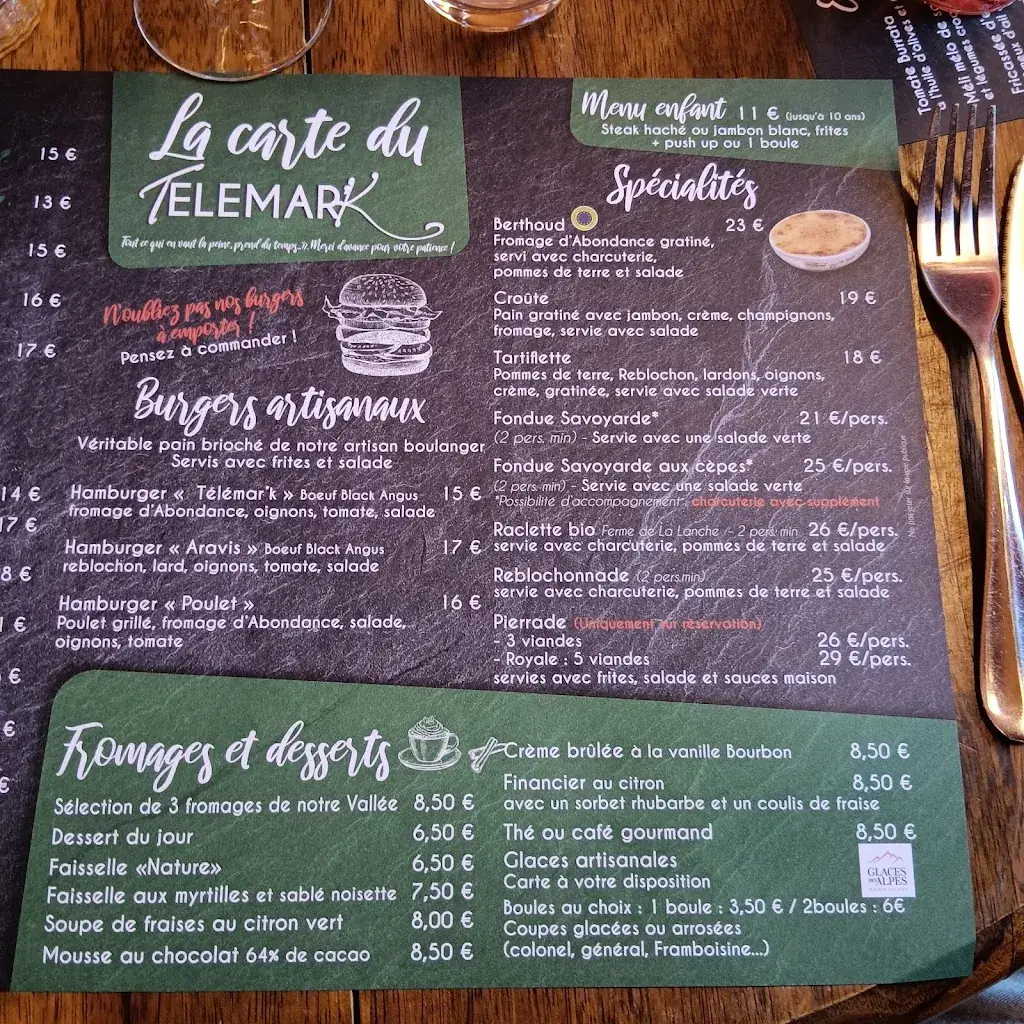 15 €
13 €
15 €
16 €
17 €
14 €
17 €
8 €
1 €
€
€
€
La carte du
TELEMAR'K
Tout ce qui en vaut la peine, prend du temps..». Merci d'avance pour votre patience !
N'oubliez pas nos burgers
à emporter !
Pensez à commander !
Burgers artisanaux
Véritable pain brioché de notre artisan boulanger
Servis avec frites et salade
Hamburger « Télémar'k » Boeuf Black Angus 15 €
fromage d'Abondance, oignons, tomate, salade
Hamburger « Aravis » Boeuf Black Angus 17 €
reblochon, lard, oignons, tomate, salade
Hamburger « Poulet » 16 €
Poulet grillé, fromage d'Abondance, salade,
oignons, tomate
Menu enfant 11 € (jusqu'à 10 ans)
Steak haché ou jambon blanc, frites
+ push up ou 1 boule
Spécialités
Berthoud 23 €
Fromage d'Abondance gratiné,
servi avec charcuterie,
pommes de terre et salade
Croûte 19 €
Pain gratiné avec jambon, crème, champignons,
fromage, servie avec salade
Tartiflette 18 €
Pommes de terre, Reblochon, lardons, oignons,
crème, gratinée, servie avec salade verte
Fondue Savoyarde* 21 €/pers.
(2 pers. min) - Servie avec une salade verte
Fondue Savoyarde aux cèpes* 25 €/pers.
(2 pers. min) - Servie avec une salade verte
*Possibilité d'accompagnement : charcuterie avec supplément
Raclette bio Ferme de La Lanche - 2 pers. min 26 €/pers.
servie avec charcuterie, pommes de terre et salade
Reblochonnade (2 pers.min) 25 €/pers.
servie avec charcuterie, pommes de terre et salade
Pierrade (Uniquement sur réservation)
- 3 viandes 26 €/pers.
- Royale : 5 viandes 29 €/pers.
servies avec frites, salade et sauces maison
Ne pas jeter sur la voie publique
Fromages et desserts
Sélection de 3 fromages de notre Vallée 8,50 €
Dessert du jour 6,50 €
Faisselle «Nature» 6,50 €
Faisselle aux myrtilles et sablé noisette 7,50 €
Soupe de fraises au citron vert 8,00 €
Mousse au chocolat 64% de cacao 8,50 €
Crème brûlée à la vanille Bourbon 8,50 €
Financier au citron 8,50 €
avec un sorbet rhubarbe et un coulis de fraise
Thé ou café gourmand 8,50 €
Glaces artisanales
Carte à votre disposition
GLACES
DES ALPES
Boules au choix : 1 boule : 3,50 € / 2boules : 6€
Coupes glacées ou arrosées
(colonel, général, Framboisine...)
Tomate Burrata
à l'huile d'olives et
Méli mélo de
et légumes croq
Fricassée d'e